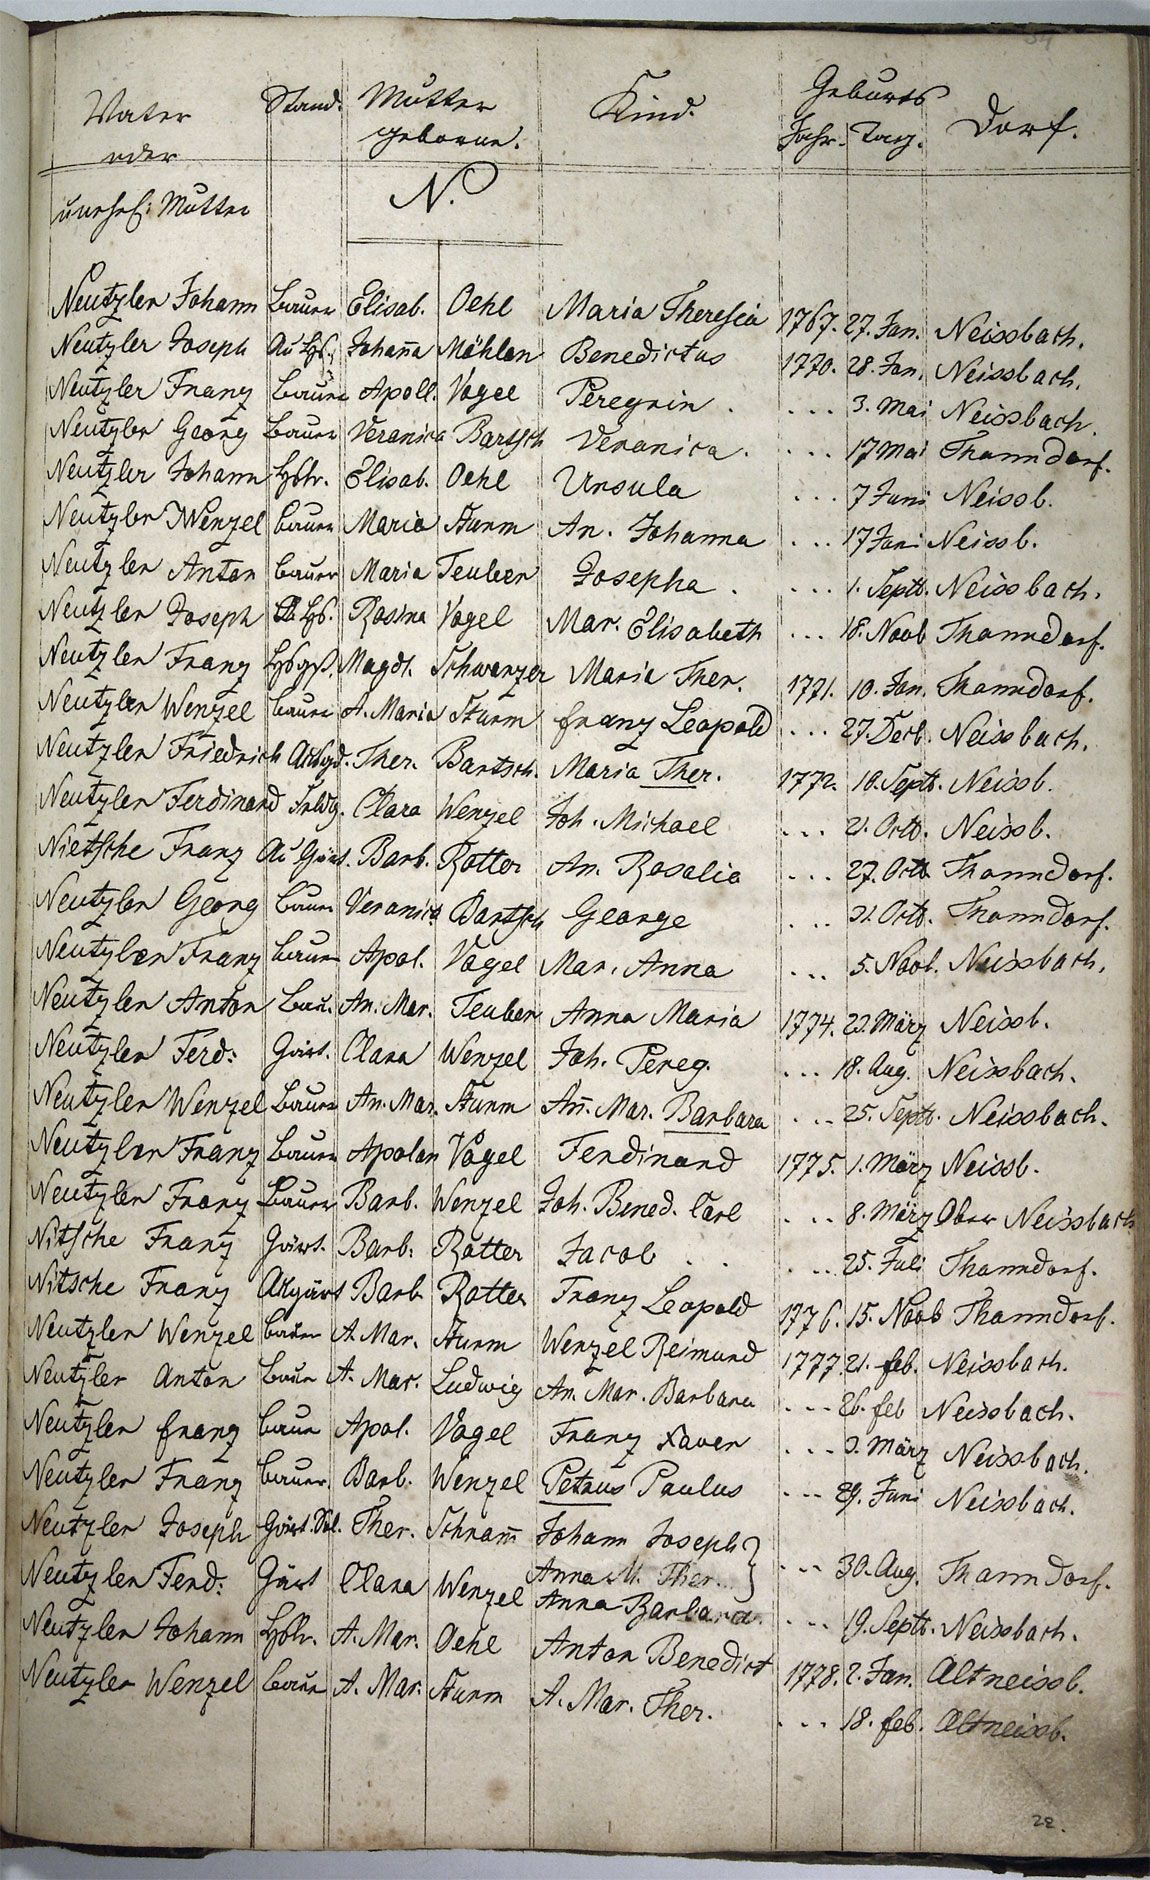 Vater Stand. Mutter Kind. Geburts Dorf.
oder geborne. Jahr. Tag.
unehel: Mutter N.
Neutzler Johann Bauer Elisab. Oehl Maria Theresia 1767. 27. Jan. Neissbach.
Neutzler Joseph Johana Möhlen Benedictus 1770. 28. Jan. Neissbach.
Neutzler Franz Bauer Apoll. Vogel Peregrin . ... 3. Mai Neissbach.
Neutzler Georg Bauer Veronica Bartsch Veronica. ... 17 Mai Thanndorf.
Neutzler Johann Hslr. Elisab. Oehl Ursula ... 7 Juni Neissb.
Neutzler Wenzel Bauer Maria Sturm An. Johanna ... 17 Juni Neissb.
Neutzler Anton Bauer Maria Teuber Josepha . ... 1. Septb. Neissbach.
Neutzler Joseph Rosina Vogel Mar. Elisabeth ... 18. Novb Thanndorf.
Neutzler Franz Magdl. Schwarzer Maria Ther. 1771. 10. Jan. Thanndorf.
Neutzler Wenzel Bauer A. Maria Sturm Franz Leopold ... 27. Decb. Neissbach.
Neutzler Friedrich Ther. Bartsch. Maria Ther. 1772. 10. Septb. Neissb.
Neutzler Ferdinand Clara Wenzel Joh. Michael ... 21. Octb. Neissb.
Nietsche Franz Au Gärt. Barb. Rotter An. Rosalia ... 27. Octb Thanndorf.
Neutzler Georg Bauer Veronica Bartsch George ... 31. Octb. Thanndorf.
Neutzler Franz Bauer Apol. Vogel Mar. Anna ... 5. Novb. Neissbach.
Neutzler Anton Bau. An. Mar. Teuber Anna Maria 1774. 23. März Neissb.
Neutzler Ferd: Gärt. Clara Wenzel Joh. Pereg. ... 18. Aug. Neissbach.
Neutzler Wenzel Bauer An. Mar. Sturm An. Mar. Barbara ... 25. Septb. Neissbach.
Neutzler Franz Bauer Apolon Vogel Ferdinand 1775. 1. März Neissb.
Neutzler Franz Bauer Barb. Wenzel Joh. Bened. Carl ... 8. März Ober Neissbach
Nitsche Franz Gärt. Barb. Rotter Jacob . . ... 25. Juli Thanndorf.
Nitsche Franz Augärt Barb. Rotter Franz Leopold 1776. 15. Novb Thanndorf.
Neutzler Wenzel Bauer A. Mar. Sturm Wenzel Reimund 1777. 21. Feb. Neissbach.
Neutzler Anton Bauer A. Mar. Ludwig An. Mar. Barbara ... 26. Feb Neissbach.
Neutzler Franz Bauer Apol. Vogel Franz Xaver ... 3. März Neissbach.
Neutzler Franz Bauer. Barb. Wenzel Petrus Paulus ... 29. Juni Neissbach.
Neutzler Joseph Gärt. Ther. Schram Johann Joseph } ... 30. Aug. Thanndorf.
Anna M. Ther.
Neutzler Ferd: Gärt Clara Wenzel Anna Barbara. ... 19. Septb. Neissbach.
Neutzler Johann Hslr. A. Mar. Oehl Anton Benedict 1778. 2. Jan. Altneissb.
Neutzler Wenzel Bauer A. Mar. Sturm A. Mar. Ther. ... 18. Feb. Altneissb.
22.